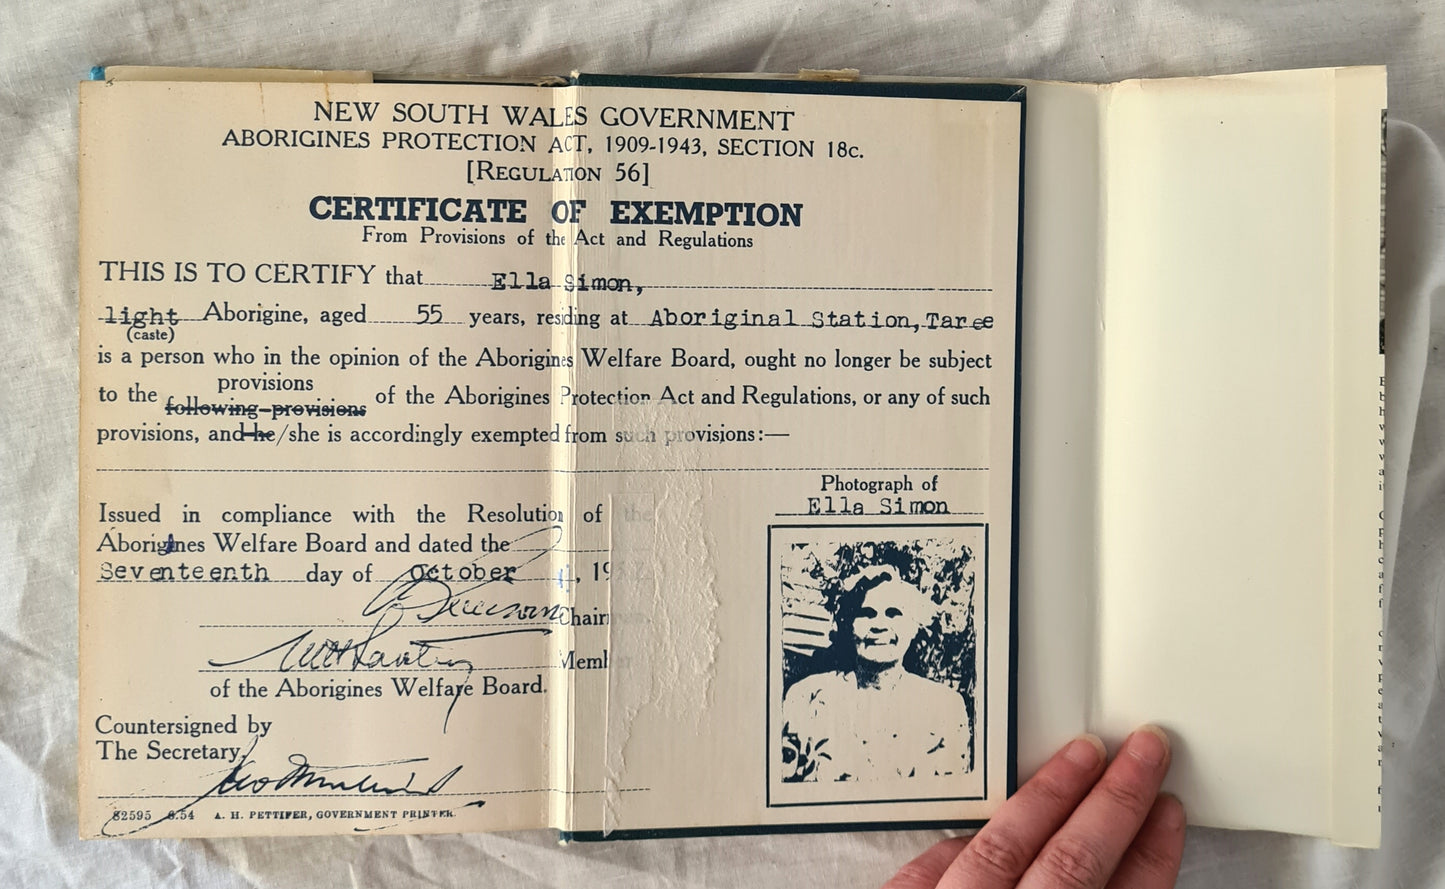 NEW SOUTH WALES GOVERNMENT
ABORIGINES PROTECTION ACT, 1909-1943, SECTION 18c.
[REGULATION 56]
CERTIFICATE OF EXEMPTION
From Provisions of the Act and Regulations
THIS IS TO CERTIFY that Ella Simon,
light Aborigine, aged 55 years, residing at Aboriginal Station, Taree
(caste)
is a person who in the opinion of the Aborigines Welfare Board, ought no longer be subject
provisions
to the following provisions of the Aborigines Protection Act and Regulations, or any of such
provisions, and he/she is accordingly exempted from such provisions:—
Photograph of
Ella Simon
Issued in compliance with the Resolution of the
Aborigines Welfare Board and dated the
Seventeenth day of October
Chairman
Member
of the Aborigines Welfare Board.
Countersigned by
The Secretary
82595 8.54 A. H. PETTIFER, GOVERNMENT PRINTER.